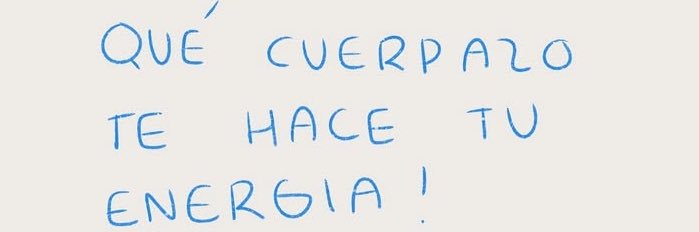 QUÉ CUERPAZO
TE HACE TU
ENERGIA!